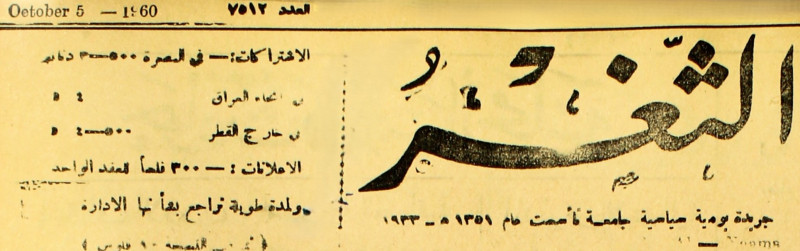 October 5 — 1960
العدد ٧٥١٢
الثغر
جريدة يومية سياسية جامعة تأسست عام ١٣٥١ ه ـ ١٩٣٣
الاشتراكات :— في البصرة ٥٠٠—٣ دنانير
في انحاء العراق ٤
في خارج القطر ٥٠٠—٤
الاعلانات :— ٣٠٠ فلساً للعقد الواحد
ولمدة طويلة تراجع بشأنها الادارة
ثمن النسخة ١٠ فلوس